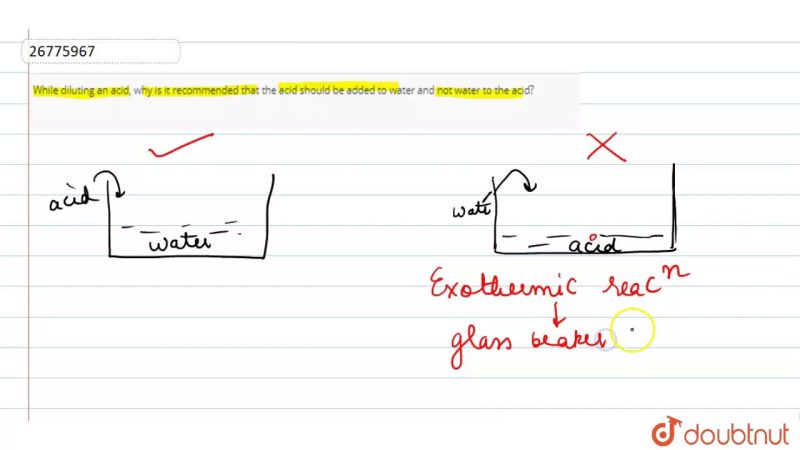 26775967
While diluting an acid, why is it recommended that the acid should be added to water and not water to the acid?
acid
water
wate
acid
Exothermic reacn
glass beaker
doubtnut